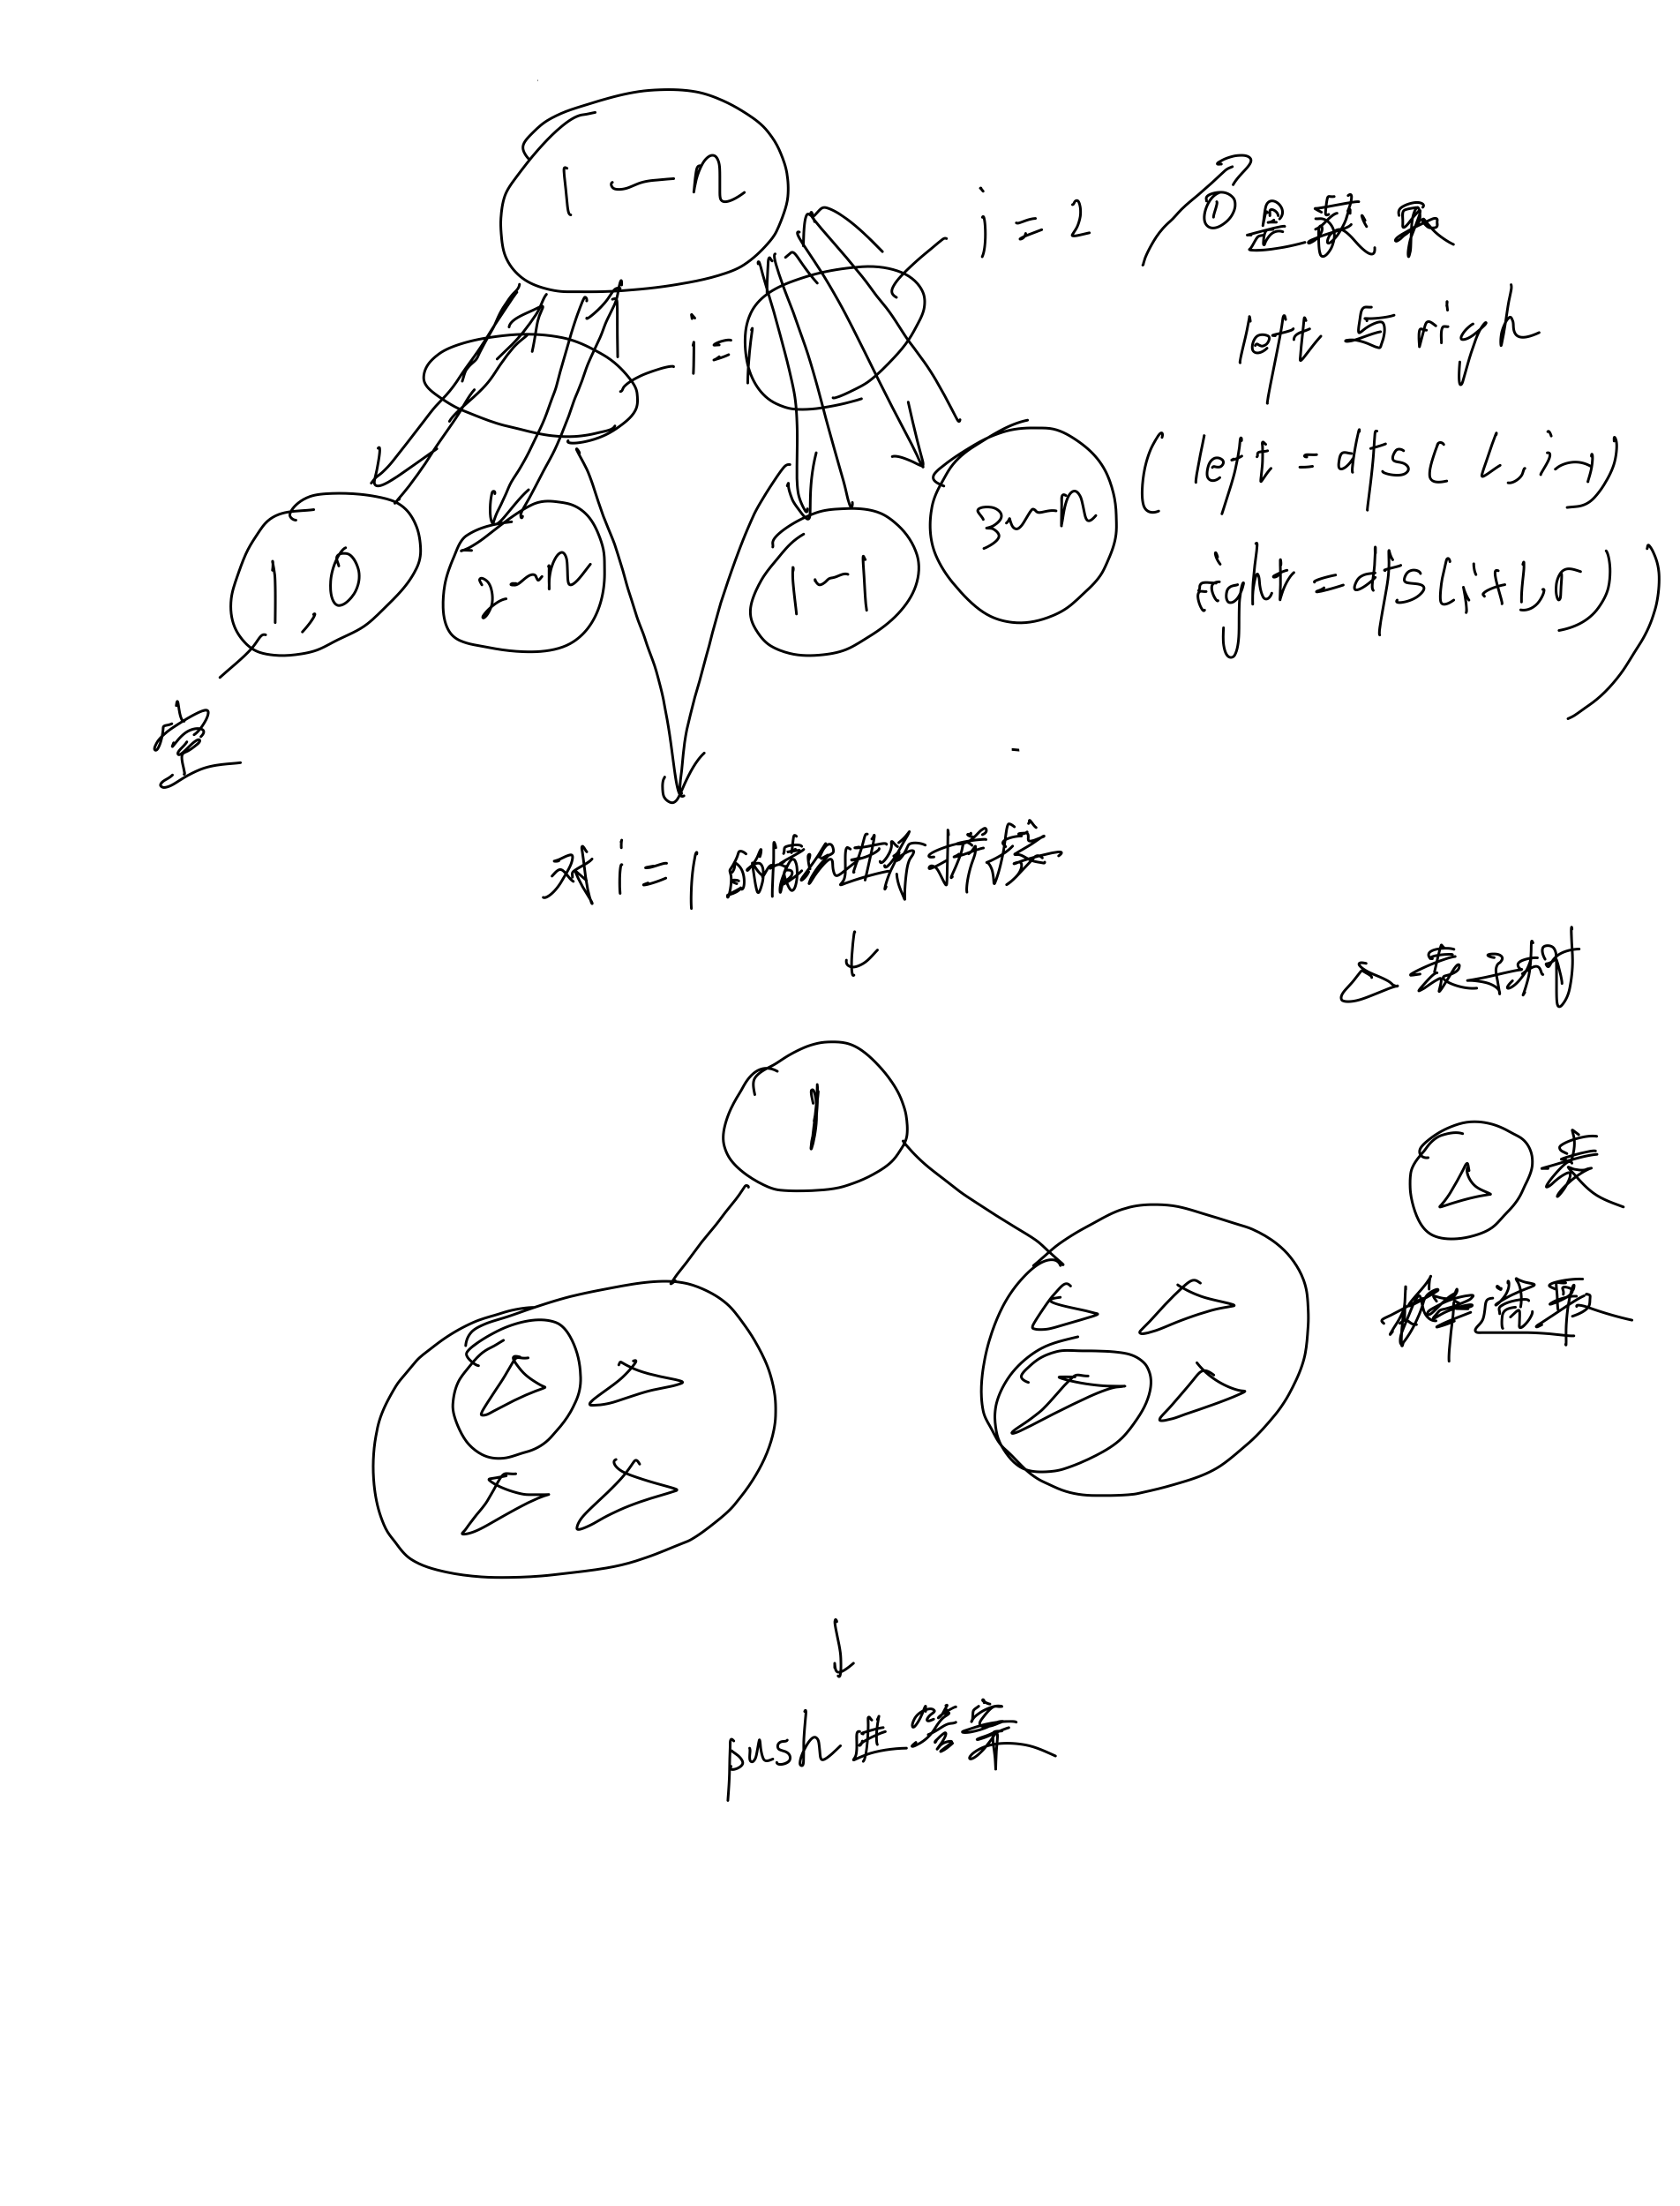 1-n
i=2
①是获取
left 与 righ
i=1
(left=dfs(l,i-1)
right=dfs(i+1,r))
1,0
2~n
1~1
3~n
空
对i=1的情况进行拼接
△表子树
1
△表
被选取
push进答案